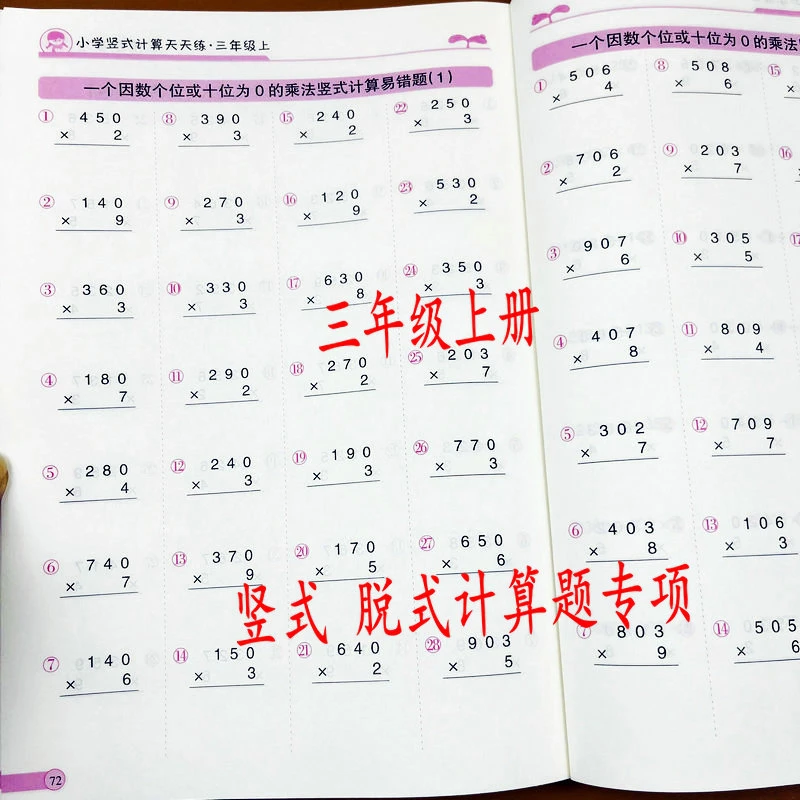 小学竖式计算天天练·三年级上
一个因数个位或十位为0的乘法竖式计算易错题(1)
① 450 ⑧ 390 ⑮ 240 ㉒ 250
× 2 × 3 × 2 × 3
② 140 ⑨ 270 ⑯ 120 ㉓ 530
× 9 × 3 × 9 × 2
③ 360 ⑩ 330 ⑰ 630 ㉔ 350
× 3 × 3 × 8 × 3
④ 180 ⑪ 290 ⑱ 270 ㉕ 203
× 7 × 2 × 2 × 7
⑤ 280 ⑫ 240 ⑲ 190 ㉖ 770
× 4 × 3 × 3 × 3
⑥ 740 ⑬ 370 ⑳ 170 ㉗ 650
× 7 × 9 × 5 × 6
⑦ 140 ⑭ 150 ㉑ 640 ㉘ 903
× 6 × 3 × 2 × 5
72
一个因数个位或十位为0的乘法
① 506 ⑧ 508 ⑮
× 4 × 6 ×
② 706 ⑨ 203 ⑯
× 2 × 7 ×
③ 907 ⑩ 305 ⑰
× 6 × 5
④ 407 ⑪ 809
× 8 × 4
⑤ 302 ⑫ 709
× 7 × 7
⑥ 403 ⑬ 106
× 8 × 3
⑦ 803 ⑭ 505
× 9 × 6
三年级上册
竖式 脱式计算题专项